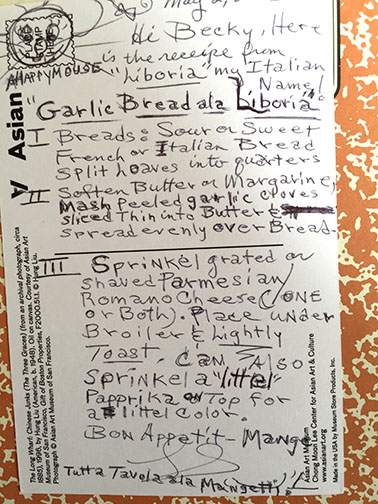 May 2,
Hi Becky, Here
is the receipe from
"Liboria" my Italian
Name!
PLACE
STAMP
HERE
A HAPPY MOUSE
Asian
"Garlic Bread ala Liboria"
I Breads: Sour or Sweet
French or Italian Bread
Split Loaves into quarters
II Soften Butter or Margarine,
Mash peeled garlic cloves
sliced Thin into Butter &
spread evenly over Bread.
III Sprinkel grated or
shaved Parmesian/
Romano Cheese (ONE
or Both). Place under
Broiler & Lightly
Toast. CAN Also
Sprinkel a "littel"
Papprika on Top for
a littel color.
Bon Appetit - Mange
Tutta Tavola ala
The Long Wharf: Chinese Jacks (The Three Graces) (from an archival photograph, circa
1888), 1996, by Hung Liu (American, b. 1948). Oil on canvas. Courtesy of Asian Art
Museum of San Francisco, Gift of Boston Properties, F2000.51.1. © Hung Liu.
Photograph © Asian Art Museum of San Francisco.
Asian Art Museum
Chong-Moon Lee Center for Asian Art & Culture
www.asianart.org
Made in the USA by Museum Store Products, Inc.